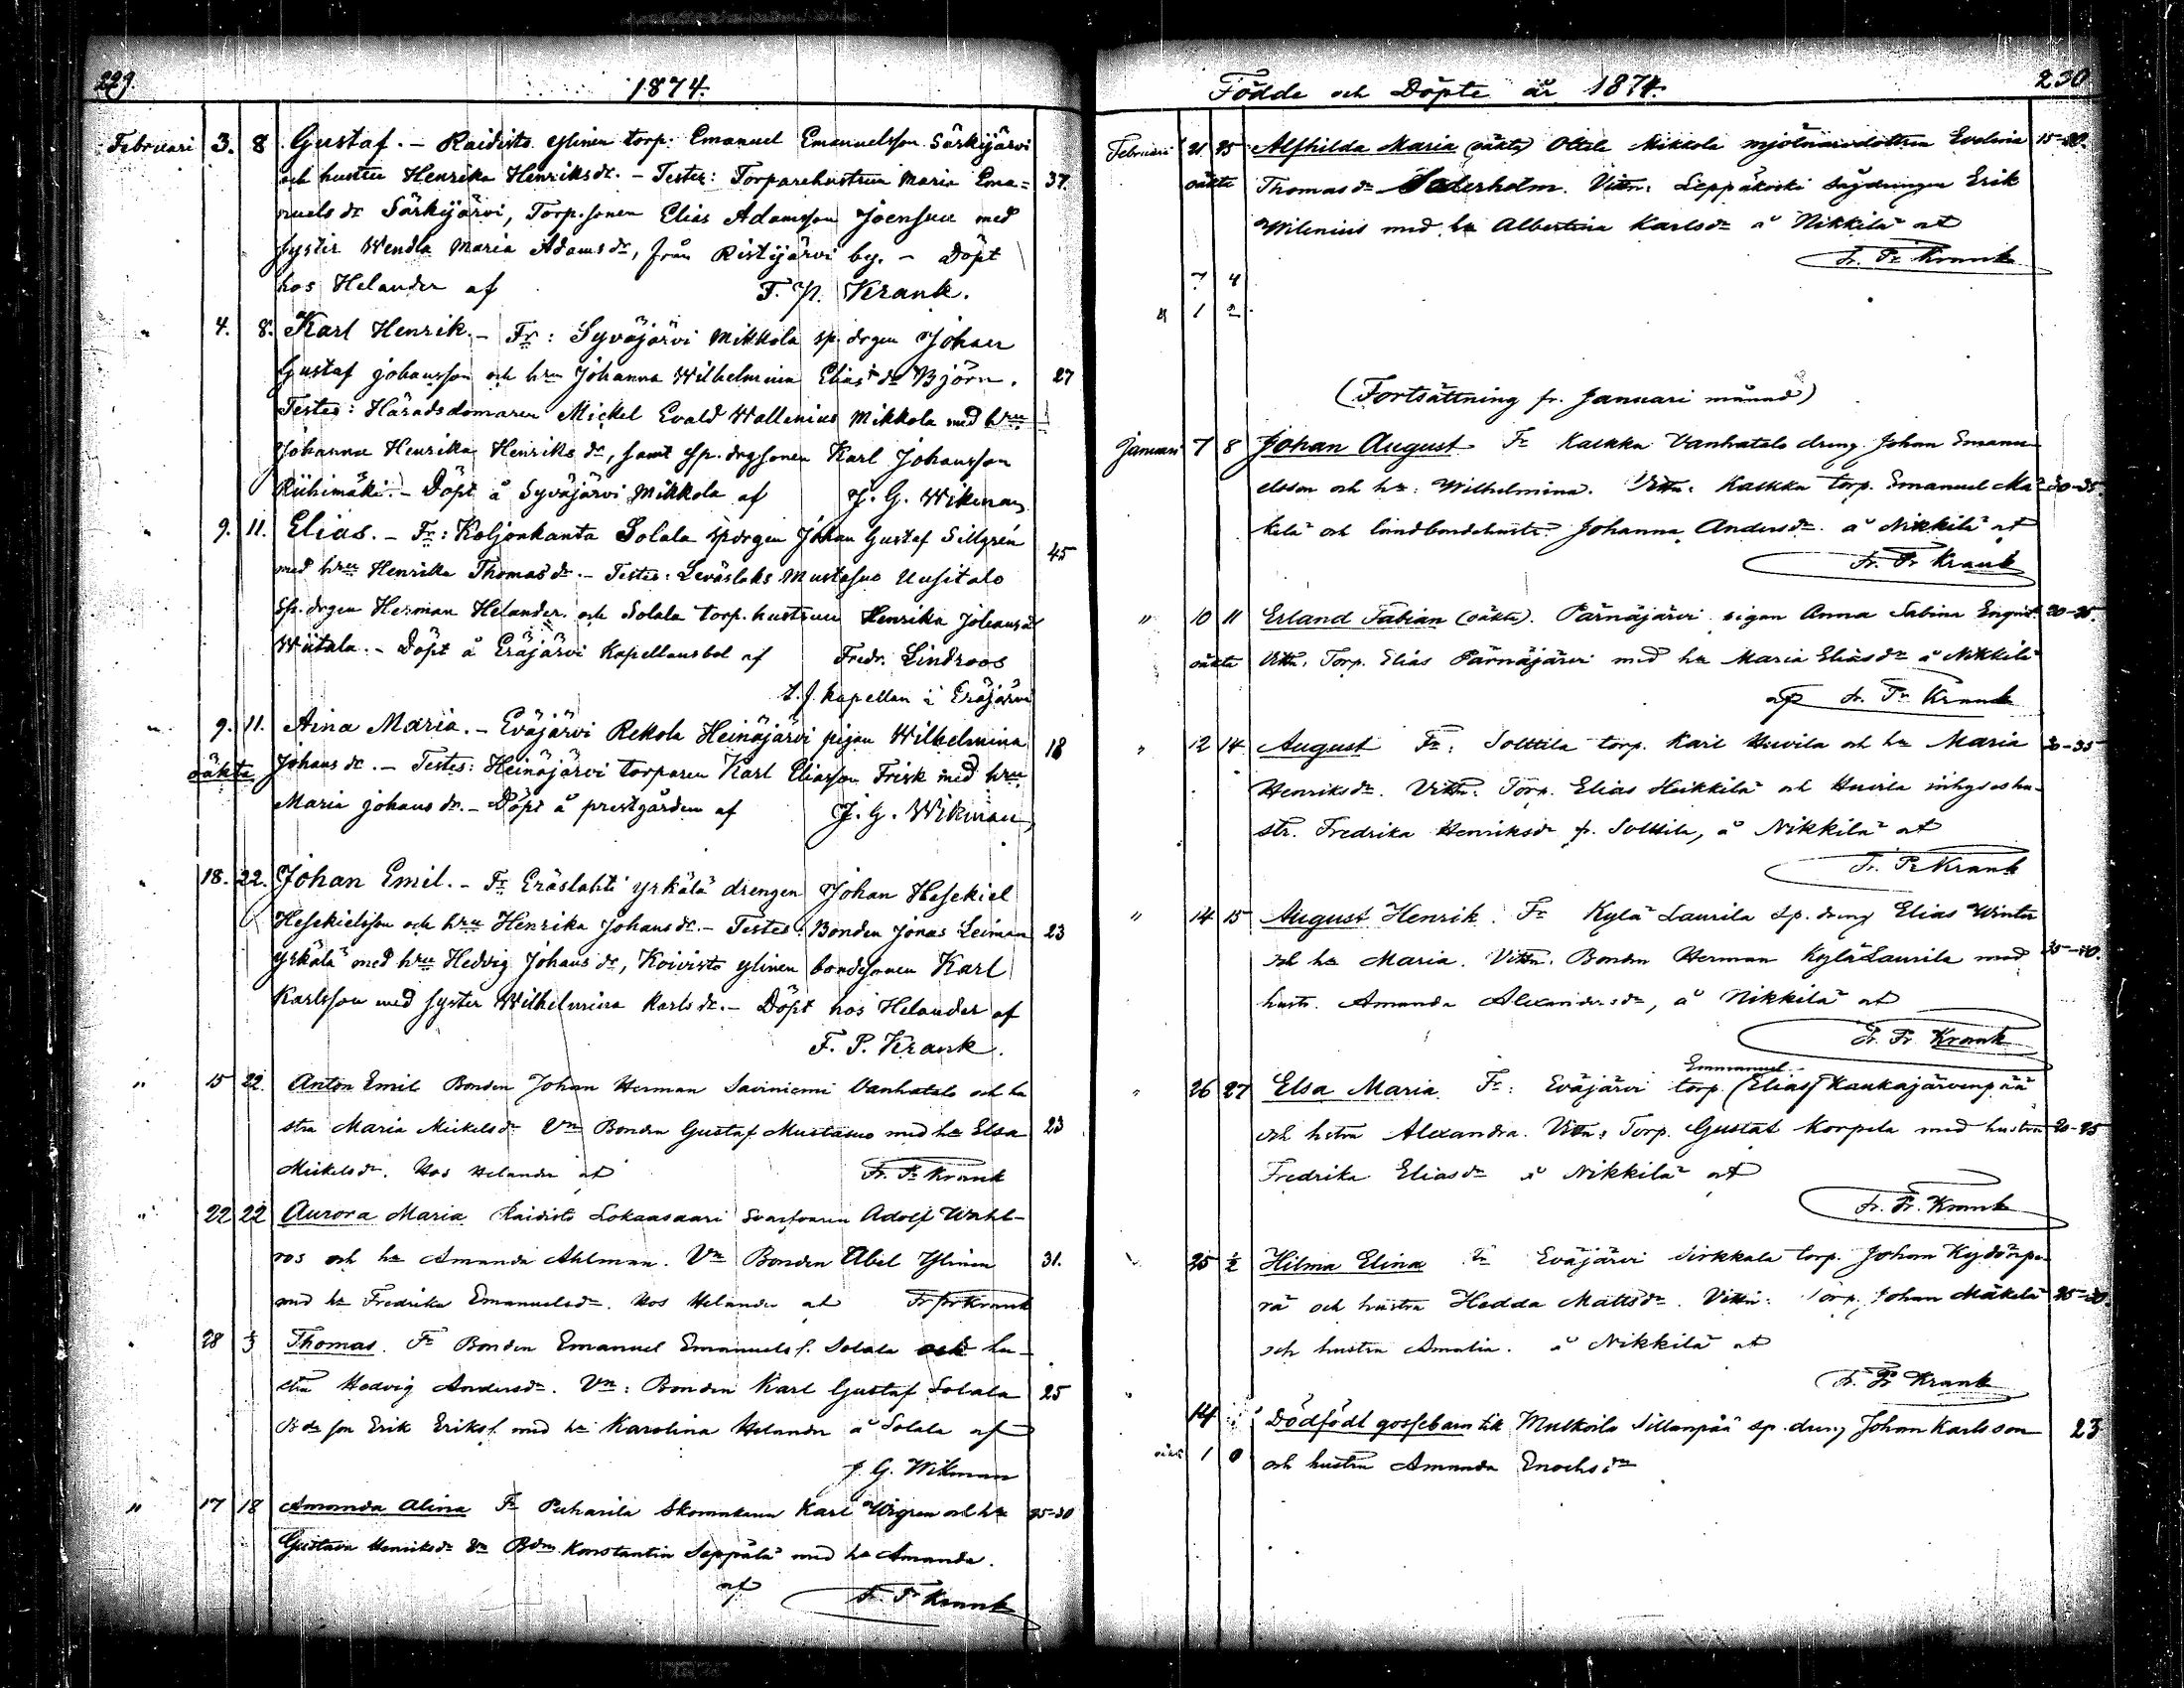 229.
1874.
Februari 3. 8 Gustaf. – Raidisto Ylinen torp. Emanuel Emanuelsson Särkijärvi
och hustru Henrika Henriksdr. – Testes: Torparehustrun Maria Ema= 37.
nuels dr Särkijärvi, Torp.sonen Elias Adamsson Joensuu med
syster Wendla Maria Adamsdr, från Ristijärvi by. – Döpt
hos Helander af F. P. Krank.
" 4. 8. Karl Henrik. – Fr: Syväjärvi Mikkola sp. drgen Johan
Gustaf Johansson och hru Johanna Wilhelmina Elias dr Björn. 27
Testes: Häradsdomaren Mickel Evald Wallenius Mikkola med hru
Johanna Henrika Henriks dr, samt sp. drgsonen Karl Johansson
Riihimäki. – Döpt å Syväjärvi Mikkola af J. G. Wikman
9. 11. Elias. – Fr: Koljonkanta Solala spdrgen Johan Gustaf Sillgrén 45
med hru Henrika Thomas dr. – Testes: Leväslaks Mustasuo Uusitalo
Sp. drgen Herman Helander och Solala torp. hustrun Henrika Johansdr
Wiitala. – Döpt å Eräjärvi Kapellansbol af Fredr. Lindroos
t.f. kapellan i Eräjärvi
" 9. 11. Aina Maria. – Eväjärvi Rekola Heinäjärvi pigan Wilhelmina 18
oäkta Johans dr. – Testes: Heinäjärvi torparen Karl Eliasson Frisk med hru
Maria Johans dr. – Döpt å prestgården af J. G. Wikman
" 18. 22. Johan Emil. – Fr Eräslahti Yrkälä drengen Johan Hesekiel
Hesekielsson och hru Henrika Johansdr. – Testes: Bonden Jonas Leiman 23
Yrkälä med hru Hedvig Johans dr, Koivisto Ylinen bondesonen Karl
Karlsson med syster Wilhelmina Karls dr. – Döpt hos Helander af
F. P. Krank.
" 15 22. Anton Emil Bonden Johan Herman Saviniemi Vanhatalo och hu
stru Maria Mickelsdr Vn Bonden Gustaf Mustasuo med hu Elsa 23
Mickelsdr. Hos Helander af Fr. Pr Krank
" 22 22 Aurora Maria Raidisto Lokaasaari Svarfvaren Adolf Wahl-
ros och hu Amanda Ahlman. Vn Bonden Abel Ylinen 31.
med hu Fredrika Emanuelsdr. Hos Helander af Fr Pr Krank
" 28 Thomas. Fr Bonden Emanuel Emanuels s. Solala och hu-
stru Hedvig Andersdr. Vn: Bonden Karl Gustaf Solala 25
son Erik Eriks s. med hu Karolina Helander å Solala af
J. G. Wikman
" 17 18 Amanda Alina Fr Puharila Skomakaren Karl Wigren och hu 25-30
Gustava Henriksdr Vn Bdn Konstantin Seppälä med hu Amanda.
af Fr. Pr Krank
Födde och Döpte år 1874. 230
Februari 21 25 Alfhilda Maria (oäkta) Mikkola mjölnaredottren Evelina 15-20.
oäkta Thomas dr Söderholm. Vittn: Leppäkoski sågdrengen Erik
Wilenius med hu Albertina Karlsdr å Nikkilä af
Fr. Pr Krank
7 4
" 1 2
(Fortsättning fr. Januari månad)
Januari 7 8 Johan August Fr Kaukka Vanhatalo dreng Johan Emanu
elsson och hu: Wilhelmina. Vittn: Kaukka torp. Emanuel Mä 30-35
kelä och landbondehustr. Johanna Andersdr. å Nikkilä af
Fr. Pr Krank
" 10 11 Erland Fabian (oäkta). Pärnäjärvi pigan Anna Sabina Enqvist. 20-25.
oäkta Vittn. Torp. Elias Pärnäjärvi med hu Maria Eliasdr å Nikkilä
af Fr. Pr Krank
" 12 14 August Fr: Solttila torp. Karl Huvila och hu Maria 30-35
Henriksdr. Vittn. Torp. Elias Heikkilä och Huvila inhyseshu-
str. Fredrika Henriksdr fr. Solttila, å Nikkilä af
Fr. Pr Krank
" 14 15 August Henrik. Fr Kylä Laurila sp. dreng Elias Winter
och hu Maria. Vittn. Bonden Herman Kylä Laurila med 35-40.
hustr. Amanda Alexandersdr, å Nikkilä af
Fr. Pr Krank
Emmanuel
" 26 27 Elsa Maria. Fr: Eväjärvi torp. (Elias) Kaukajärvenpää
och hstru Alexandra. Vittn: Torp. Gustaf Korpela med hustru 20-25
Fredrika Eliasdr å Nikkilä af
Fr. Pr. Krank
" 25 Hilma Elina Fr Eväjärvi Sirkkala torp. Johan Kydönpe-
rä och hustru Hedda Mattsdr. Vittn: Torp. Johan Mäkelä 25-30.
och hustru Amalia. å Nikkilä af
Fr. Pr Krank
" 14 Dödfödt gossebarn till Multsila Sillanpää sp. dreng Johan Karlsson 23
1 0 och hustru Amanda Enochsdr